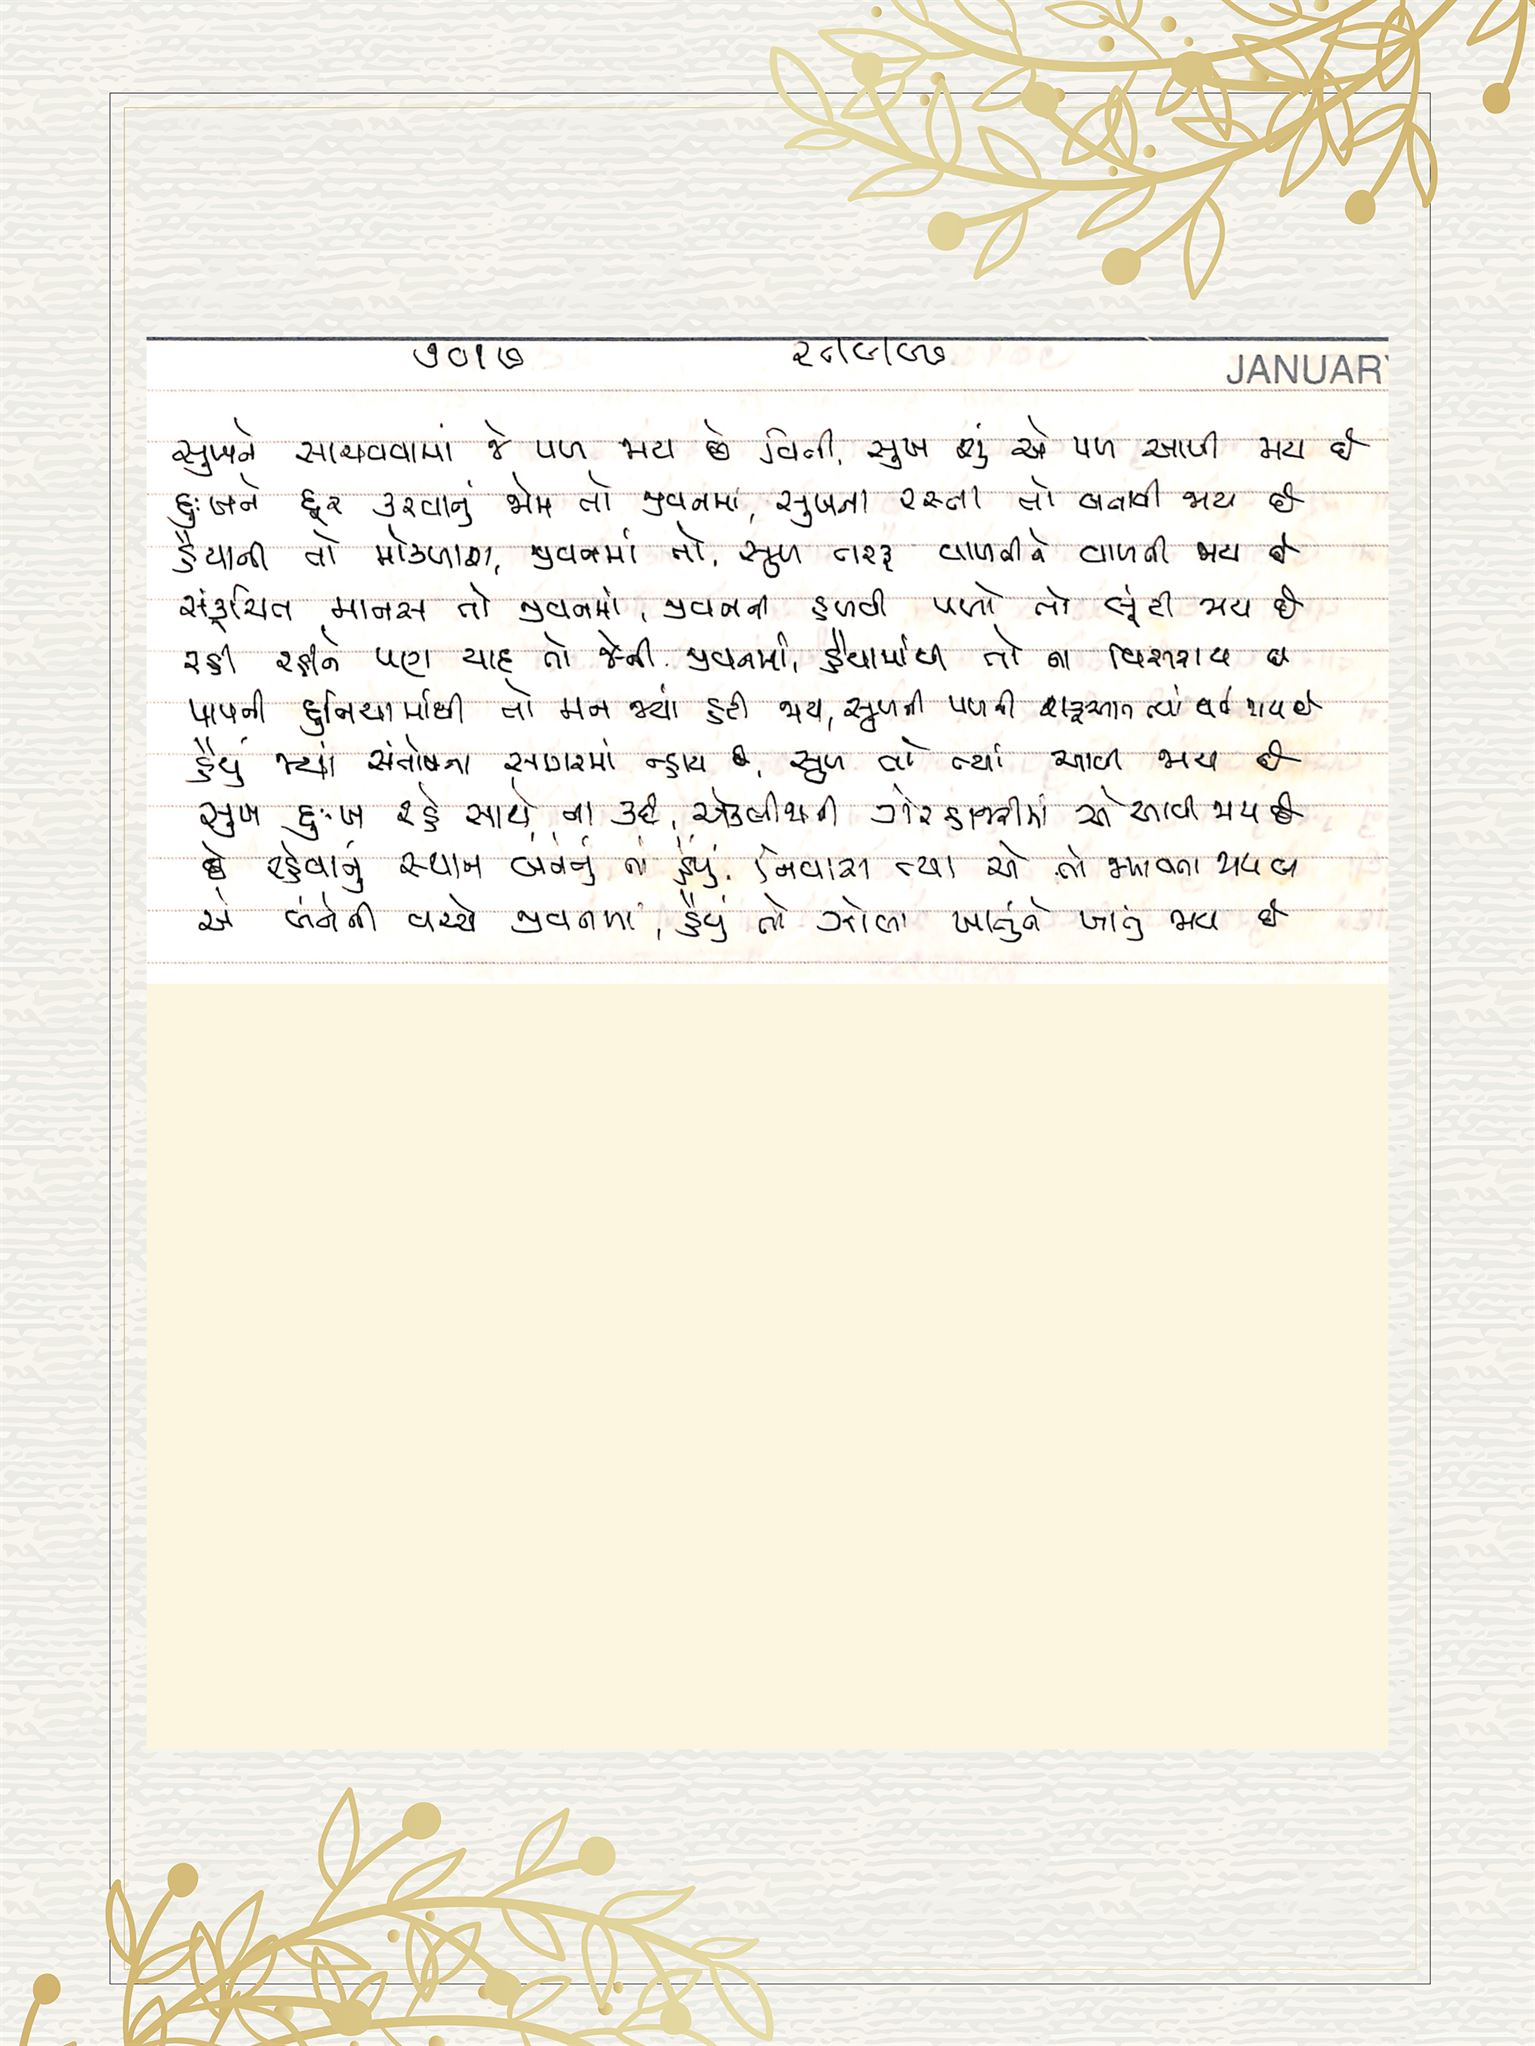 ૭૦૧૭
JANUAR
સુખને સાચવવામાં જે પળ જાય છે વિતી, સુખ શું એ પળ આપી જાય છે
દુઃખને દૂર કરવાનું જોમ તો જીવનમાં, સુખના રસ્તા તો બનાવી જાય છે
હૈયાની તો મોકળાશ, જીવનમાં તો, સુખ તરફ વાળતીને વાળતી જાય છે
સંકુચિત માનસ તો જીવનમાં, જીવનની હળવી પળો તો લૂંટી જાય છે
રહી રહીને પણ યાદ તો જેની જીવનમાં, હૈયામાંથી તો ના વિસરાય છે
પાપની દુનિયામાંથી તો મન જ્યાં હટી જાય, સુખની પળની શરૂઆત ત્યાં થાય છે
હૈયું જ્યાં સંતોષના સાગરમાં ન્હાય છે, સુખ તો ત્યાં આવી જાય છે
સુખ દુઃખ રહે સાથે ના કદી, એકબીજાની ગેરહાજરીમાં એ આવી જાય છે
છે રહેવાનું સ્થાન બંનેનું તો હૈયું, નિવાસ ત્યાં એ તો
એ બંનેની વચ્ચે જીવનમાં, હૈયું તો ઝોલા ખાતુંને ખાતું જાય છે